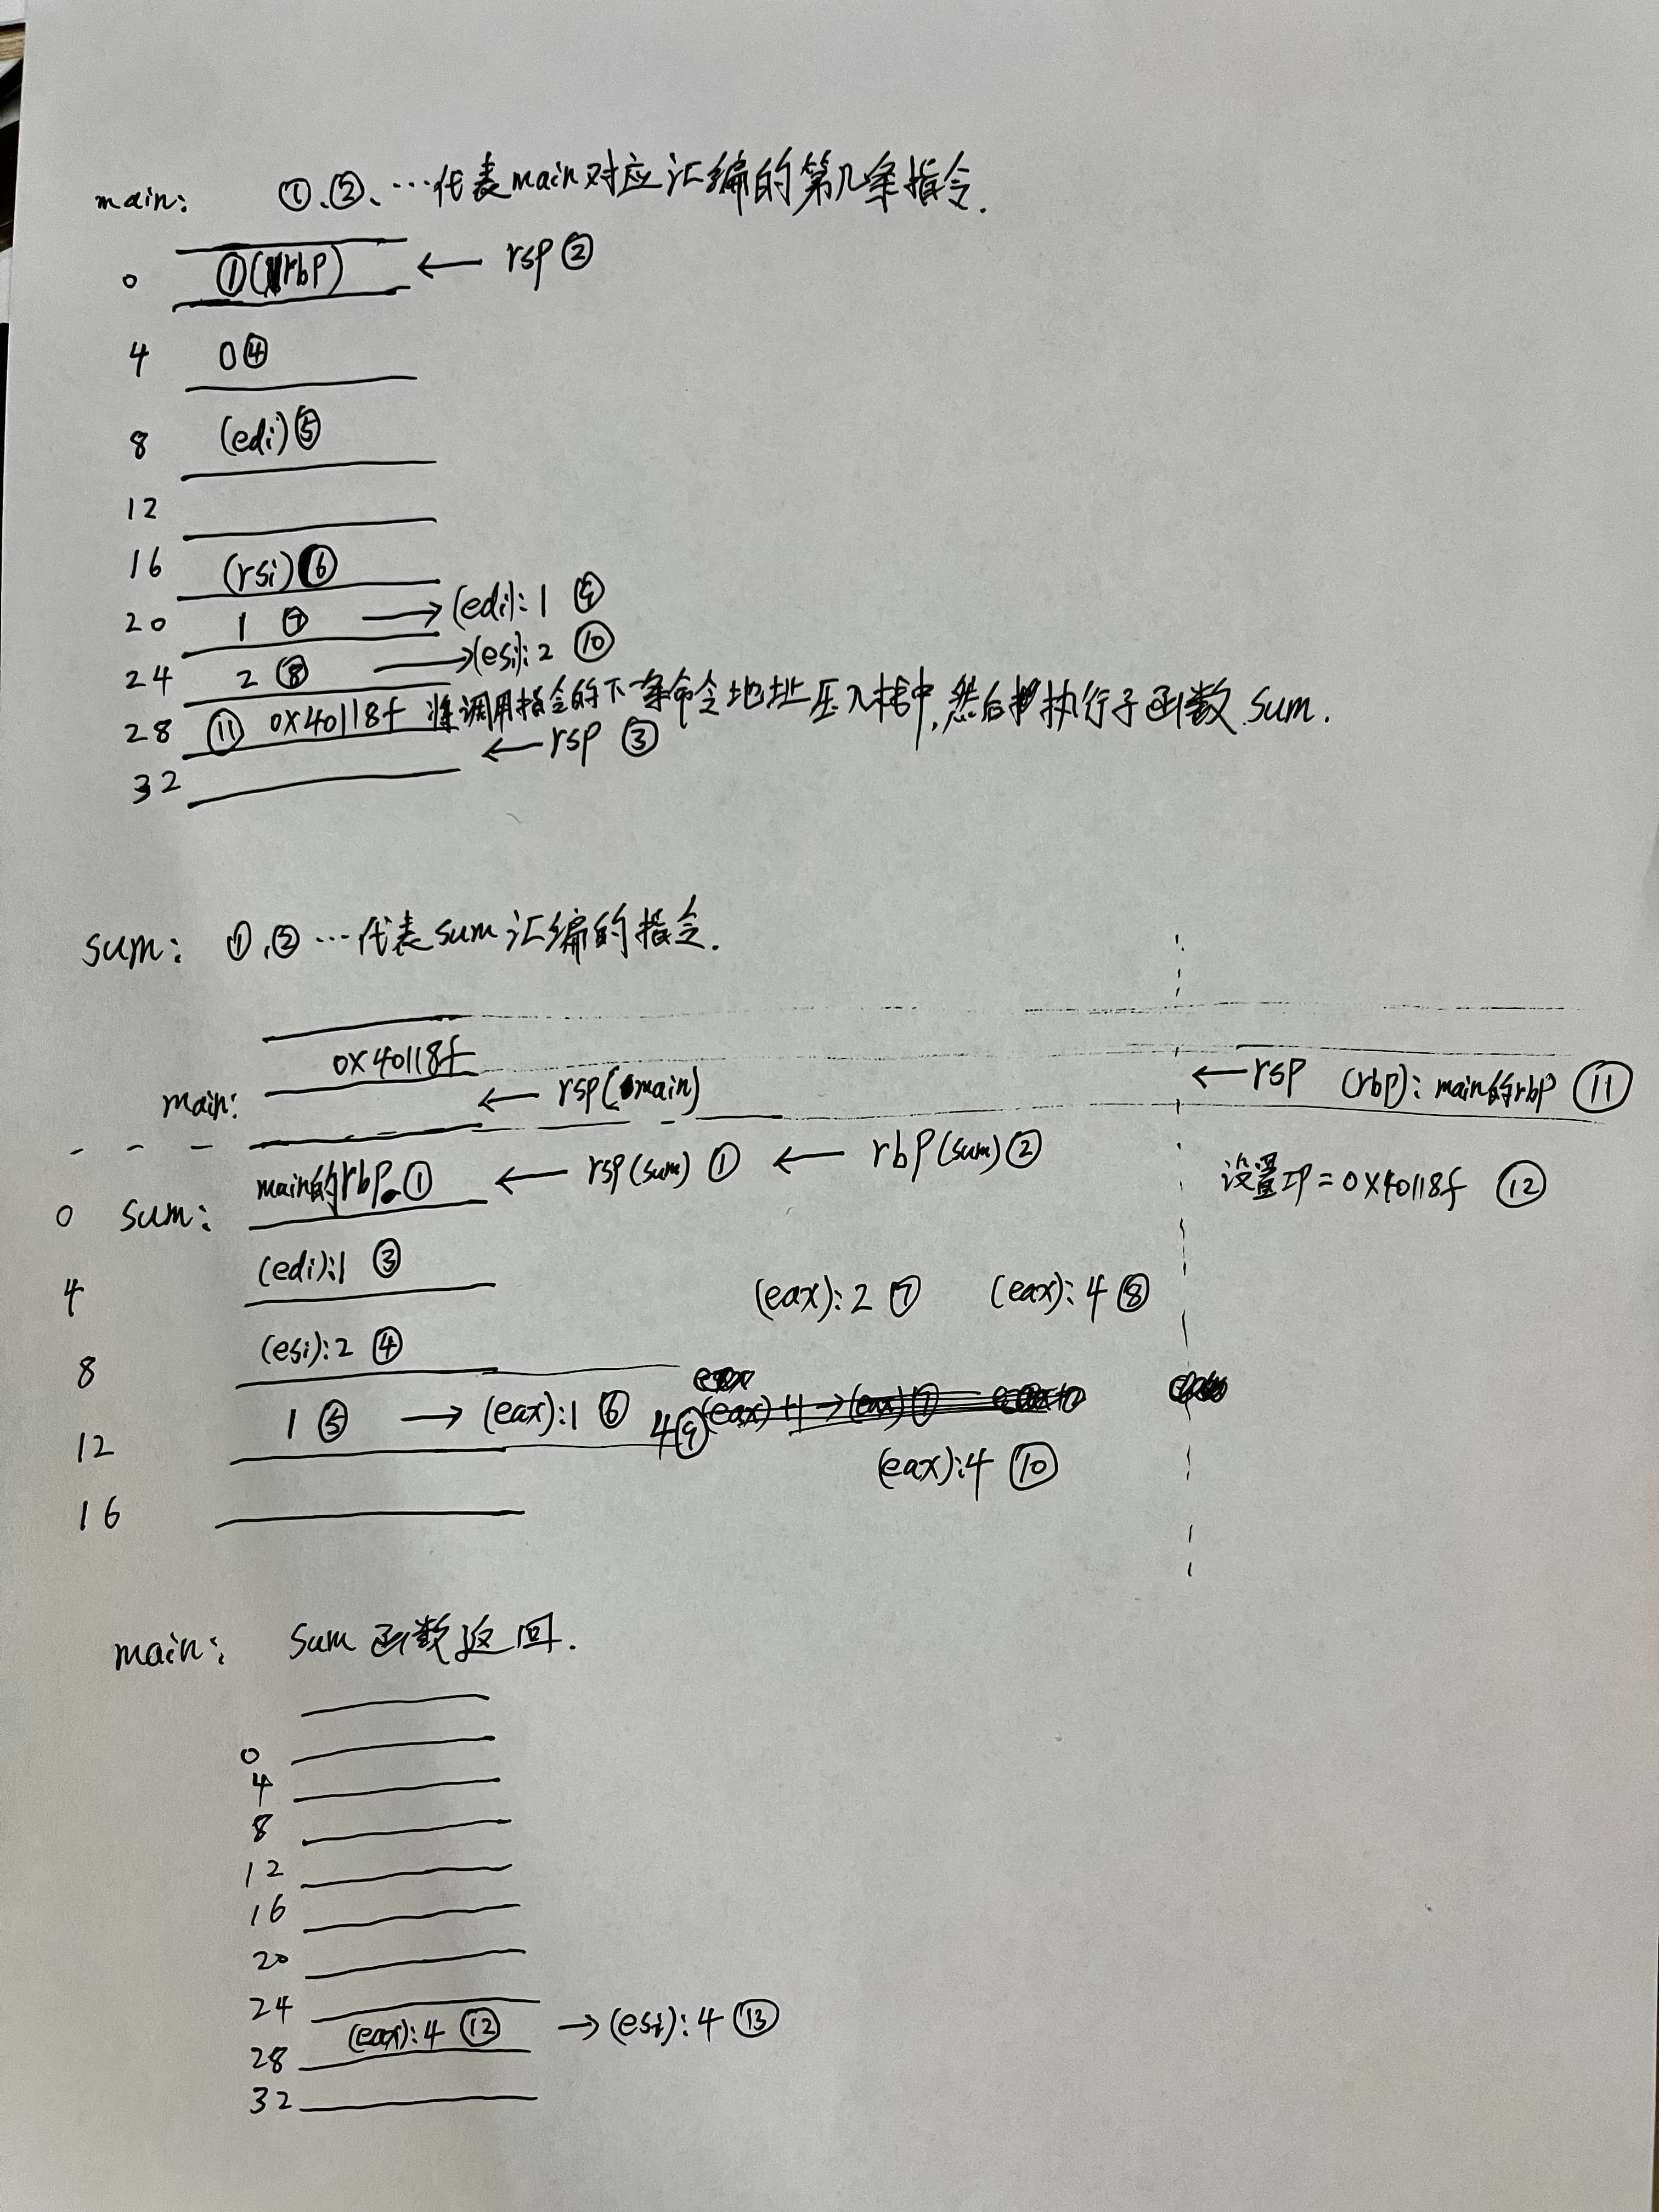 main: ①、②、…代表main对应汇编的第几条指令.
0 ①(rbp) ← rsp ②
4 0④
8 (edi)⑤
12
16 (rsi)⑥
20 1 ⑦ → (edi):1 ⑨
24 2 ⑧ → (esi):2 ⑩
28 ⑪ 0x40118f 将调用指令的下一条命令地址压入栈中,然后执行子函数 sum.
← rsp ③
32
sum: ①,②…代表sum汇编的指令.
0x40118f
main: ← rsp(main) ← rsp (rbp): main的rbp ⑪
0 sum: main的rbp ① ← rsp(sum) ① ← rbp(sum)② 设置IP=0x40118f ⑫
4 (edi):1 ③ (eax):2 ⑦ (eax):4 ⑧
8 (esi):2 ④
12 1 ⑤ → (eax):1 ⑥ 4⑨
(eax):4 ⑩
16
main: sum 函数返回.
0
4
8
12
16
20
24
28 (eax):4 ⑫ → (esi):4 ⑬
32